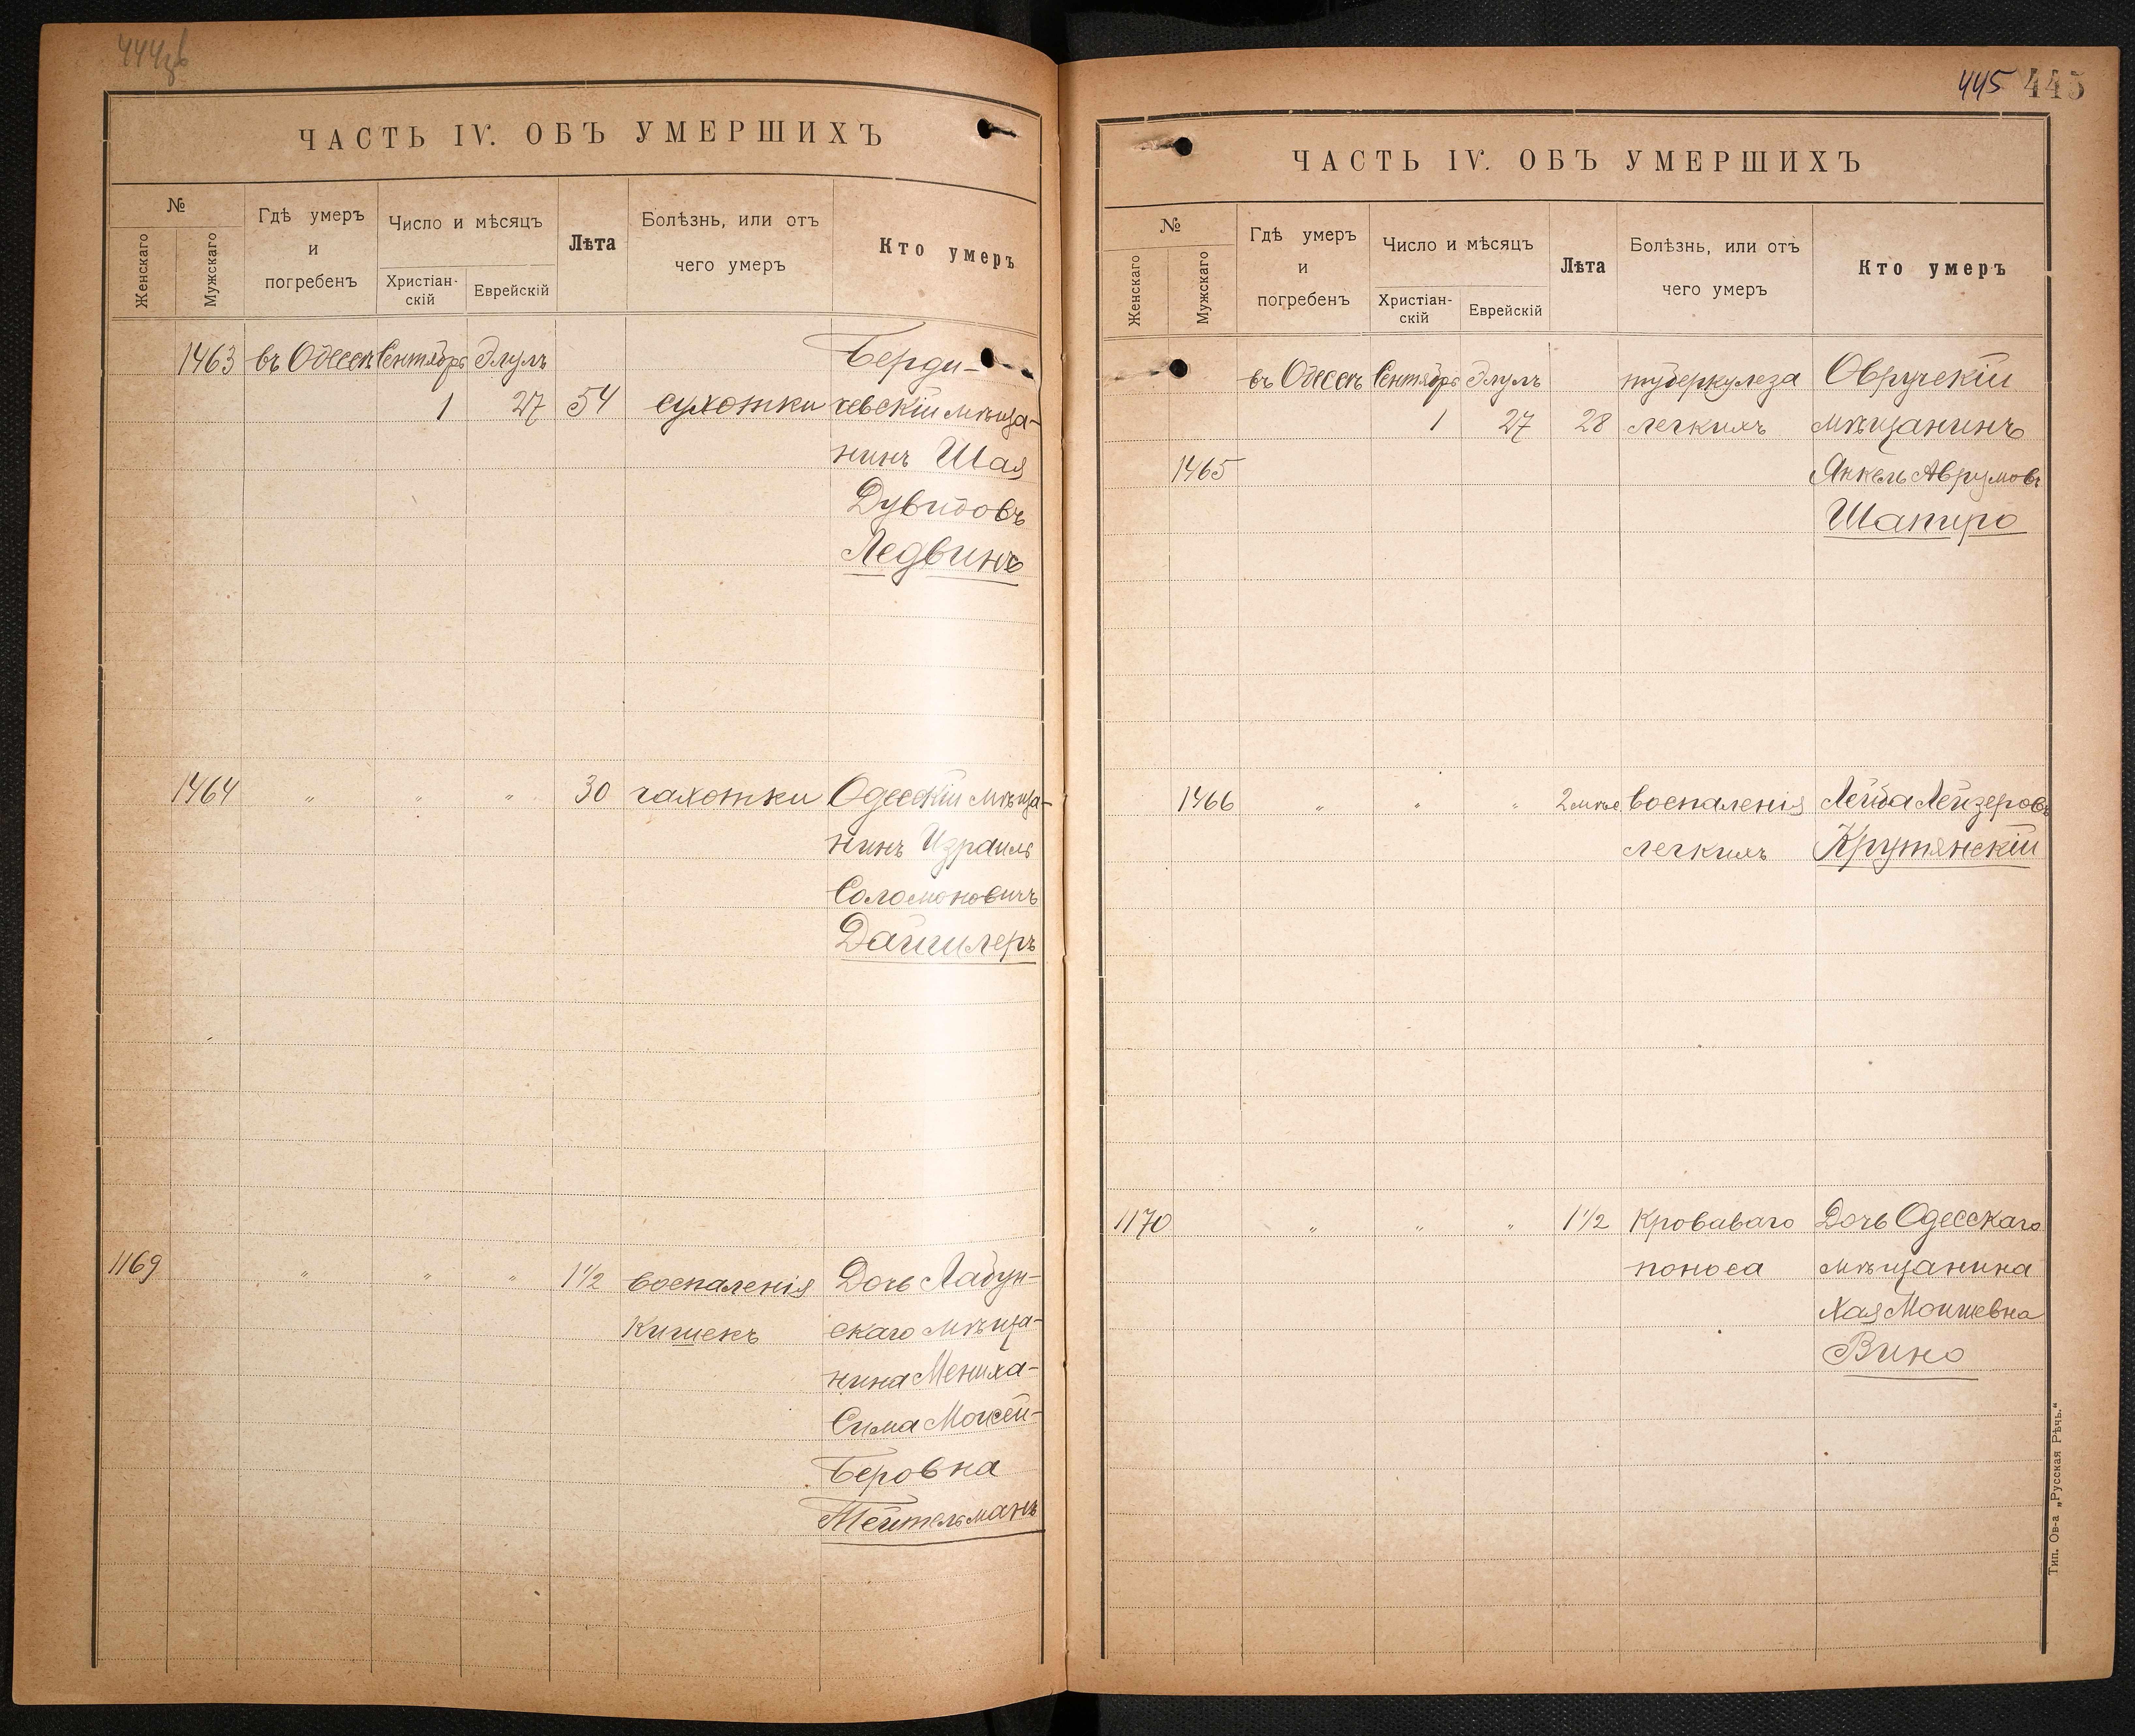 444об
ЧАСТЬ IV. ОБЪ УМЕРШИХЪ
№
Женскаго
Мужскаго
Гдѣ умеръ
и
погребенъ
Число и мѣсяцъ
Христіан-
скій
Еврейскій
Лѣта
Болѣзнь, или отъ
чего умеръ
Кто умеръ
1463 въ Одессѣ Сентябрь Элулъ Берди-
1 27 54 сухотки чевскій мѣща-
нинъ Шая
Дувидовъ
Ледвинъ
1464 " " " 30 чахотки Одесскій мѣща-
нинъ Израиль
Соломоновичъ
1169 " " " 1 1/2 воспаленія Дочь Лабун-
Кишекъ скаго мѣща-
нина Мениха-
Сима Мойсей-
Беровна
Тейтельманъ
445 445
ЧАСТЬ IV. ОБЪ УМЕРШИХЪ
№
Женскаго
Мужскаго
Гдѣ умеръ
и
погребенъ
Число и мѣсяцъ
Христіан-
скій
Еврейскій
Лѣта
Болѣзнь, или отъ
чего умеръ
Кто умеръ
въ Одессѣ Сентябрь Элулъ туберкулеза Овручскій
1 27 28 легкихъ мѣщанинъ
1465 Янкель Аврумовъ
Шапиро
1466 " " " 2 мѣс. воспаленія Лейба Лейзеровъ
легкихъ Крутянскій
1170 " " " 1 1/2 Кроваваго Дочь Одесскаго
поноса мѣщанина
Хая Моишевна
Вино
Тип. Ов-а „Русская Рѣчь.“